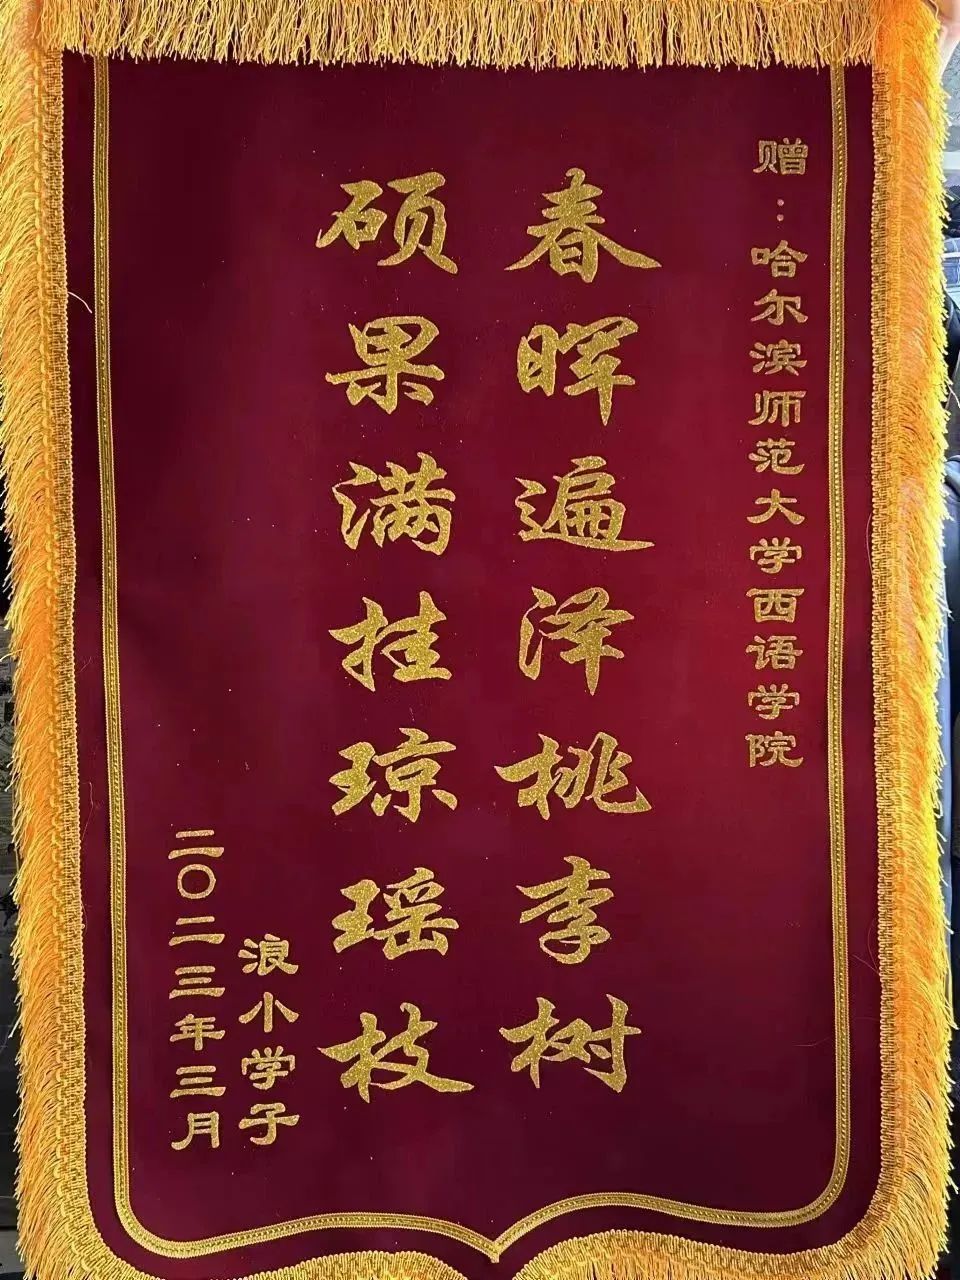 赠：哈尔滨师范大学西语学院
春晖遍泽桃李树
硕果满挂琼瑶枝
浪小学子
二〇二三年三月